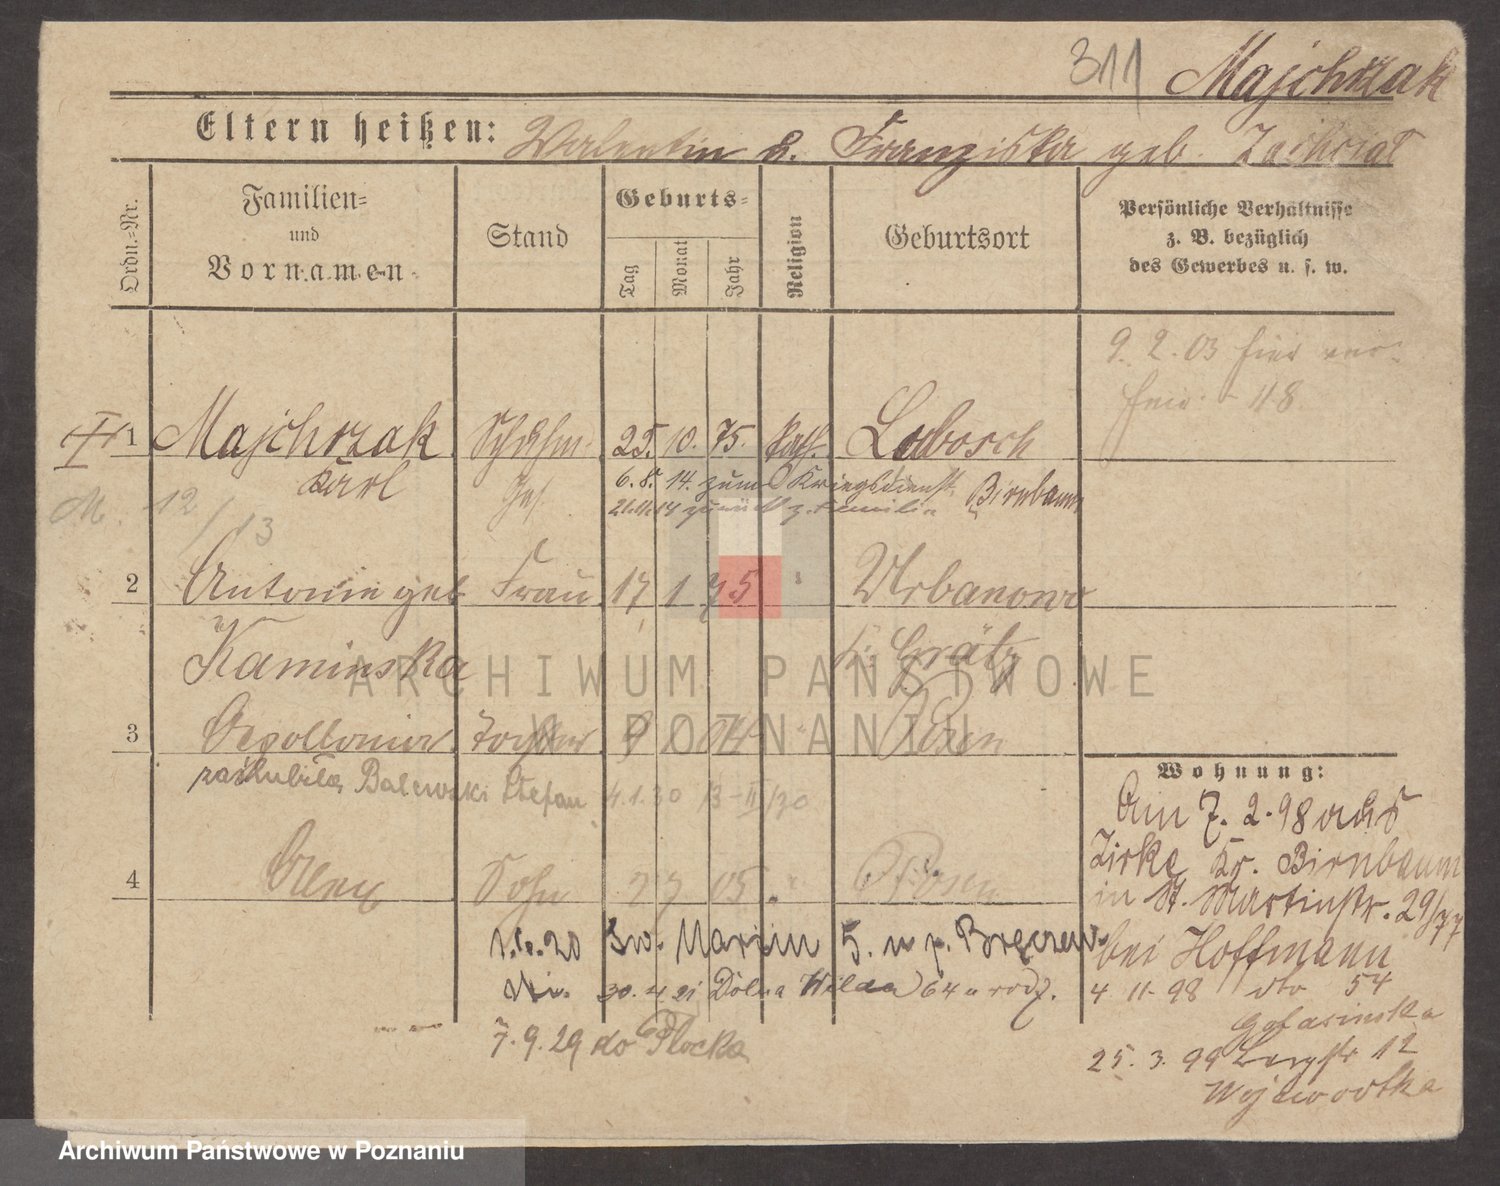 311 Majchrzak
Eltern heißen: Valentin u. Franziska geb.
Ordn.-Nr.
Familien-
und
Vornamen
Stand
Geburts-
Tag
Monat
Jahr
Religion
Geburtsort
Persönliche Verhältnisse
z. B. bezüglich
des Gewerbes u. s. w.
9. 2. 03 hier
118
1 Majchrzak 25. 10. 75. kath. Lubosch
Karl
6. 8. 14. zum Kriegsdienst Birnbaum
21.11.14 zurück z. Familie
M. 12/13
2 Antonie geb Frau 17 1 75 " Urbanowo
Kaminska Kr. Grätz
3 Apollonia Tochter 9 1 04 " Posen
zaślubiła Balewski Stefan 4.1.30 13-II/30
4 Alex Sohn 7 7 05 " Posen
Wohnung:
Am 7. 2. 98 aus
Zirke Kr. Birnbaum
in St. Martinstr. 29/77
bei Hoffmann
4 11 98 dto 54
Golasinska
25. 3. 99 Langstr 12
Wojewodtka
1.10.20 Św. Marcin 5. u p.
30. 4 21 Dolna Wilda 64 u rodz.
7. 9. 29 do Płocka
ARCHIWUM PAŃSTWOWE
W POZNANIU
Archiwum Państwowe w Poznaniu